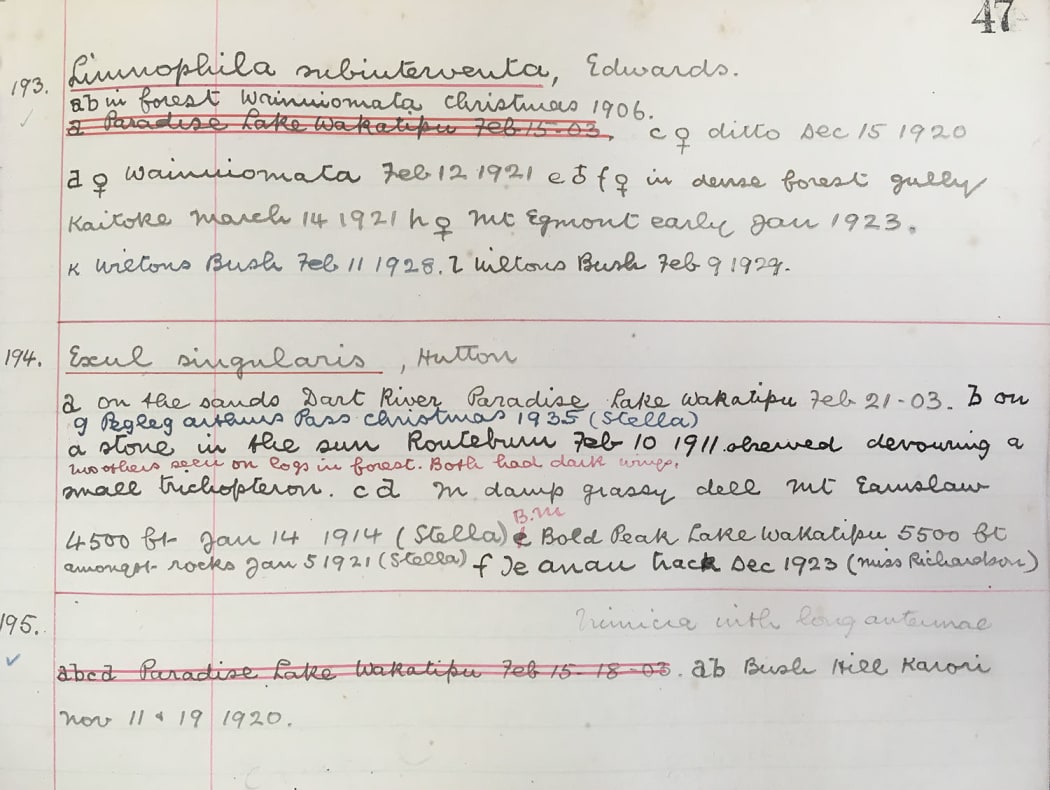 47
193. Limnophila subinterventa, Edwards.
ab in forest Wainuiomata Christmas 1906.
a Paradise Lake Wakatipu Feb 15-03, c ♀ ditto Dec 15 1920
d ♀ Wainuiomata Feb 12 1921 e ♂ f ♀ in dense forest gully
Kaitoke March 14 1921 h ♀ Mt Egmont early Jan 1923.
k Wiltons Bush Feb 11 1928. l Wiltons Bush Feb 9 1929.
194. Exul singularis, Hutton
a on the sands Dart River Paradise Lake Wakatipu Feb 21-03. b on
g Pegleg Arthurs Pass Christmas 1935 (Stella)
a stone in the sun Routeburn Feb 10 1911 observed devouring a
two others seen on logs in forest. Both had dark wings.
small trichopteron. c d In damp grassy dell Mt Earnslaw
B.M
4500 ft Jan 14 1914 (Stella) e Bold Peak Lake Wakatipu 5500 ft
amongst rocks Jan 5 1921 (Stella) f Te Anau track Dec 1923 (Miss Richardson)
195. with long antennae
abcd Paradise Lake Wakatipu Feb 15-18-03. ab Bush Hill Karori
Nov 11 & 19 1920.